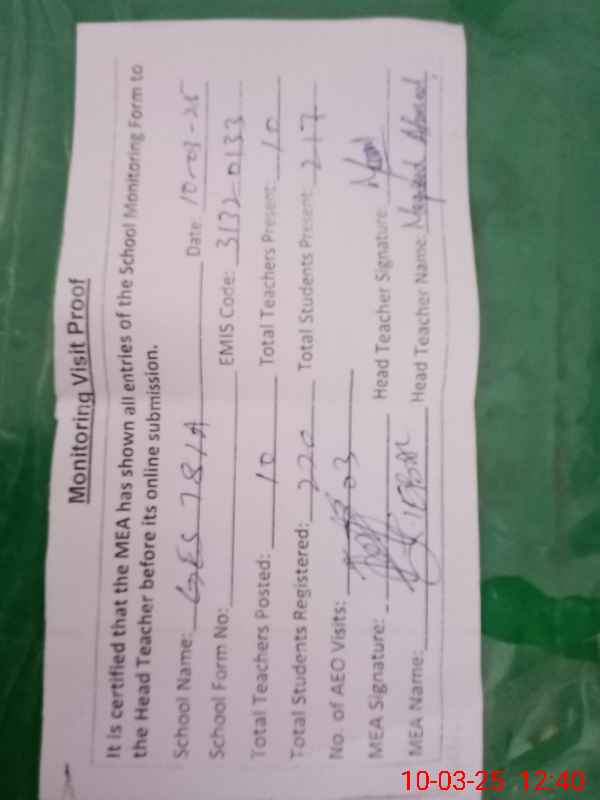 Monitoring Visit Proof
It is certified that the MEA has shown all entries of the School Monitoring Form to
the Head Teacher before its online submission.
School Name: GES 78/A Date: 10-03-25
School Form No: EMIS Code: 3132 0133
Total Teachers Posted: 10 Total Teachers Present: 10
Total Students Registered: 220 Total Students Present: 217
No. of AEO Visits: 03
MEA Signature: Head Teacher Signature:
MEA Name: Head Teacher Name:
10-03-25 12:40